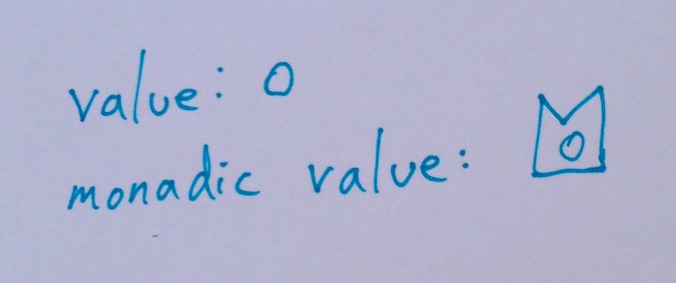 value: O
monadic value: